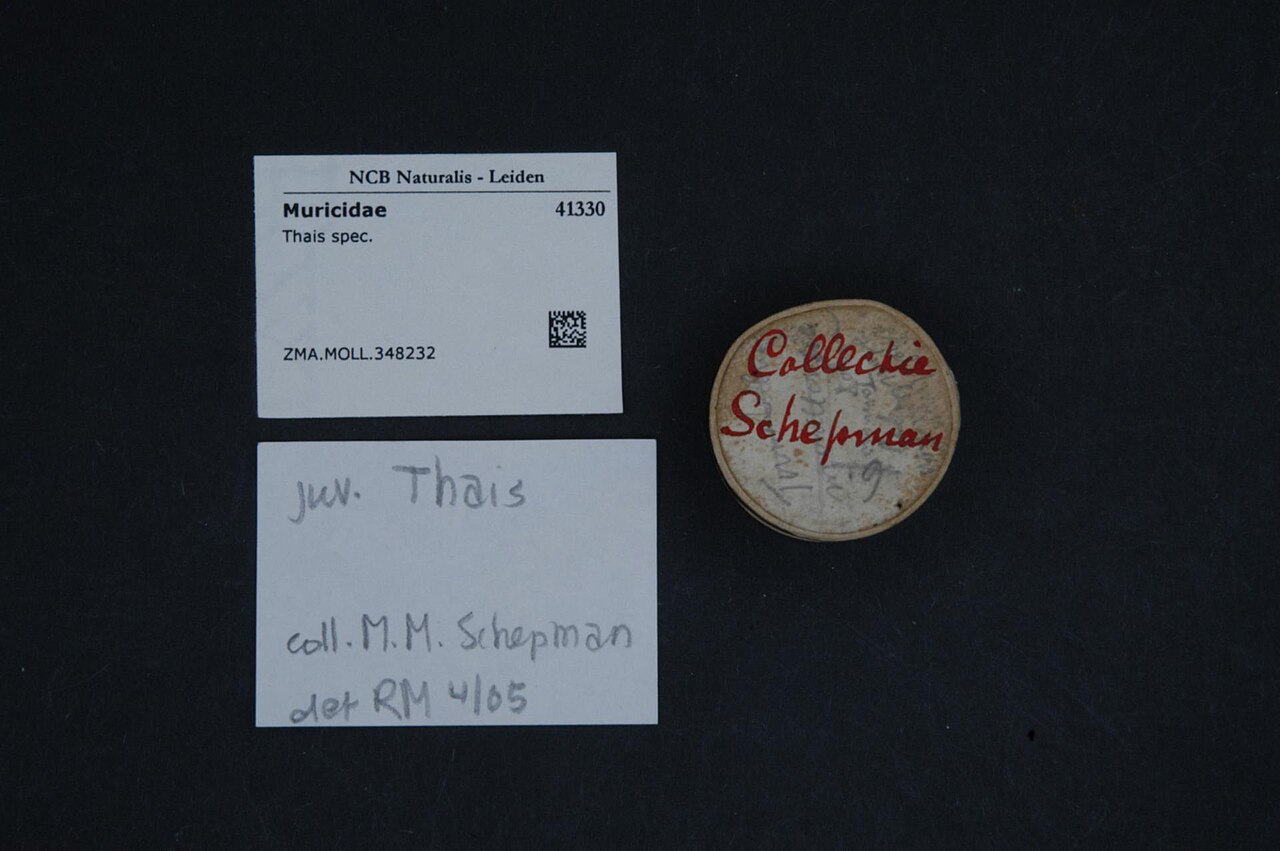 NCB Naturalis - Leiden
Muricidae 41330
Thais spec.
ZMA.MOLL.348232
juv. Thais
coll. M.M. Schepman
det RM 4/05
Collectie
Schepman